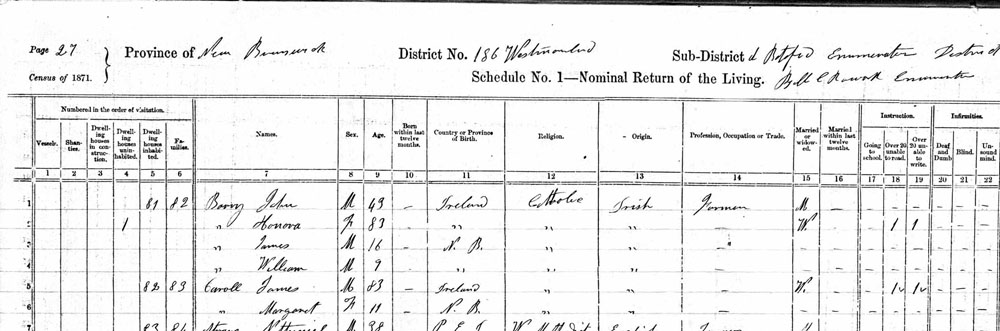 Page 27
Census of 1871.
Province of New Brunswick
District No. 186 Westmorland
Sub-District d Botsford Enumerator District
Schedule No. 1—Nominal Return of the Living.
Numbered in the order of visitation.
Vessels. Shanties. Dwelling houses in construction. Dwelling houses uninhabited. Dwelling houses inhabited. Families. Names. Sex. Age. Born within last twelve months. Country or Province of Birth. Religion. Origin. Profession, Occupation or Trade. Married or widowed. Married within last twelve months. Instruction. Going to school. Over 20 unable to read. Over 20 unable to write. Infirmities. Deaf and Dumb. Blind. Unsound mind.
1 2 3 4 5 6 7 8 9 10 11 12 13 14 15 16 17 18 19 20 21 22
1 81 82 Barry John M 43 – Ireland Catholic Irish M –
2 1 „ Honora F 83 – „ „ „ – W. – – 1 1 – – –
3 „ James M 16 – N. B. „ „ – – – – – – – – –
4 „ William M 9 – „ „ „ – – – – – – – – –
5 82 83 Caroll James M 83 – Ireland „ „ – W. – – 1 1 – – –
6 „ Margaret F 11 – N. B. „ „ – – – – – – – – –
83 84 M 38 P. E. I.